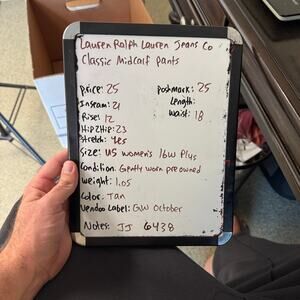 Lauren Ralph Lauren Jeans Co
Classic Midcalf pants
Price: 25 Poshmark: 25
Inseam: 21 Length:
Rise: 12 Waist: 18
Hip2Hip: 23
Stretch: Yes
Size: US women's 16W Plus
Condition: Gently worn preowned
Weight: 1.05
Color: Tan
Vendoo Label: GW October
Notes: JJ 6438